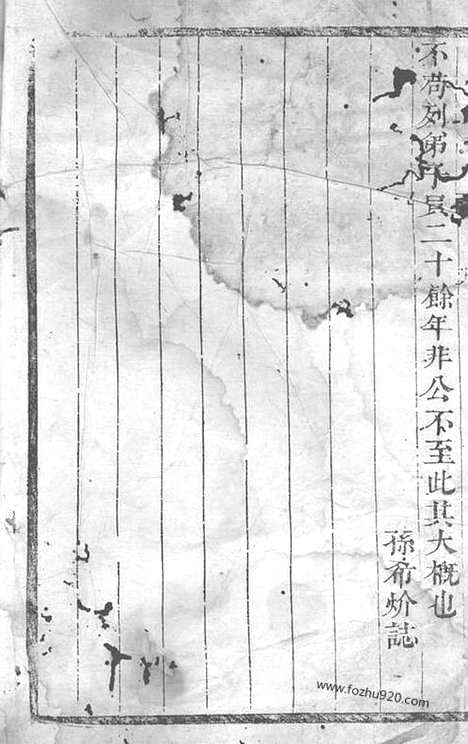 不苟列弟子員二十餘年非公不至此其大概也
孫希炌誌
www.fozhu920.com